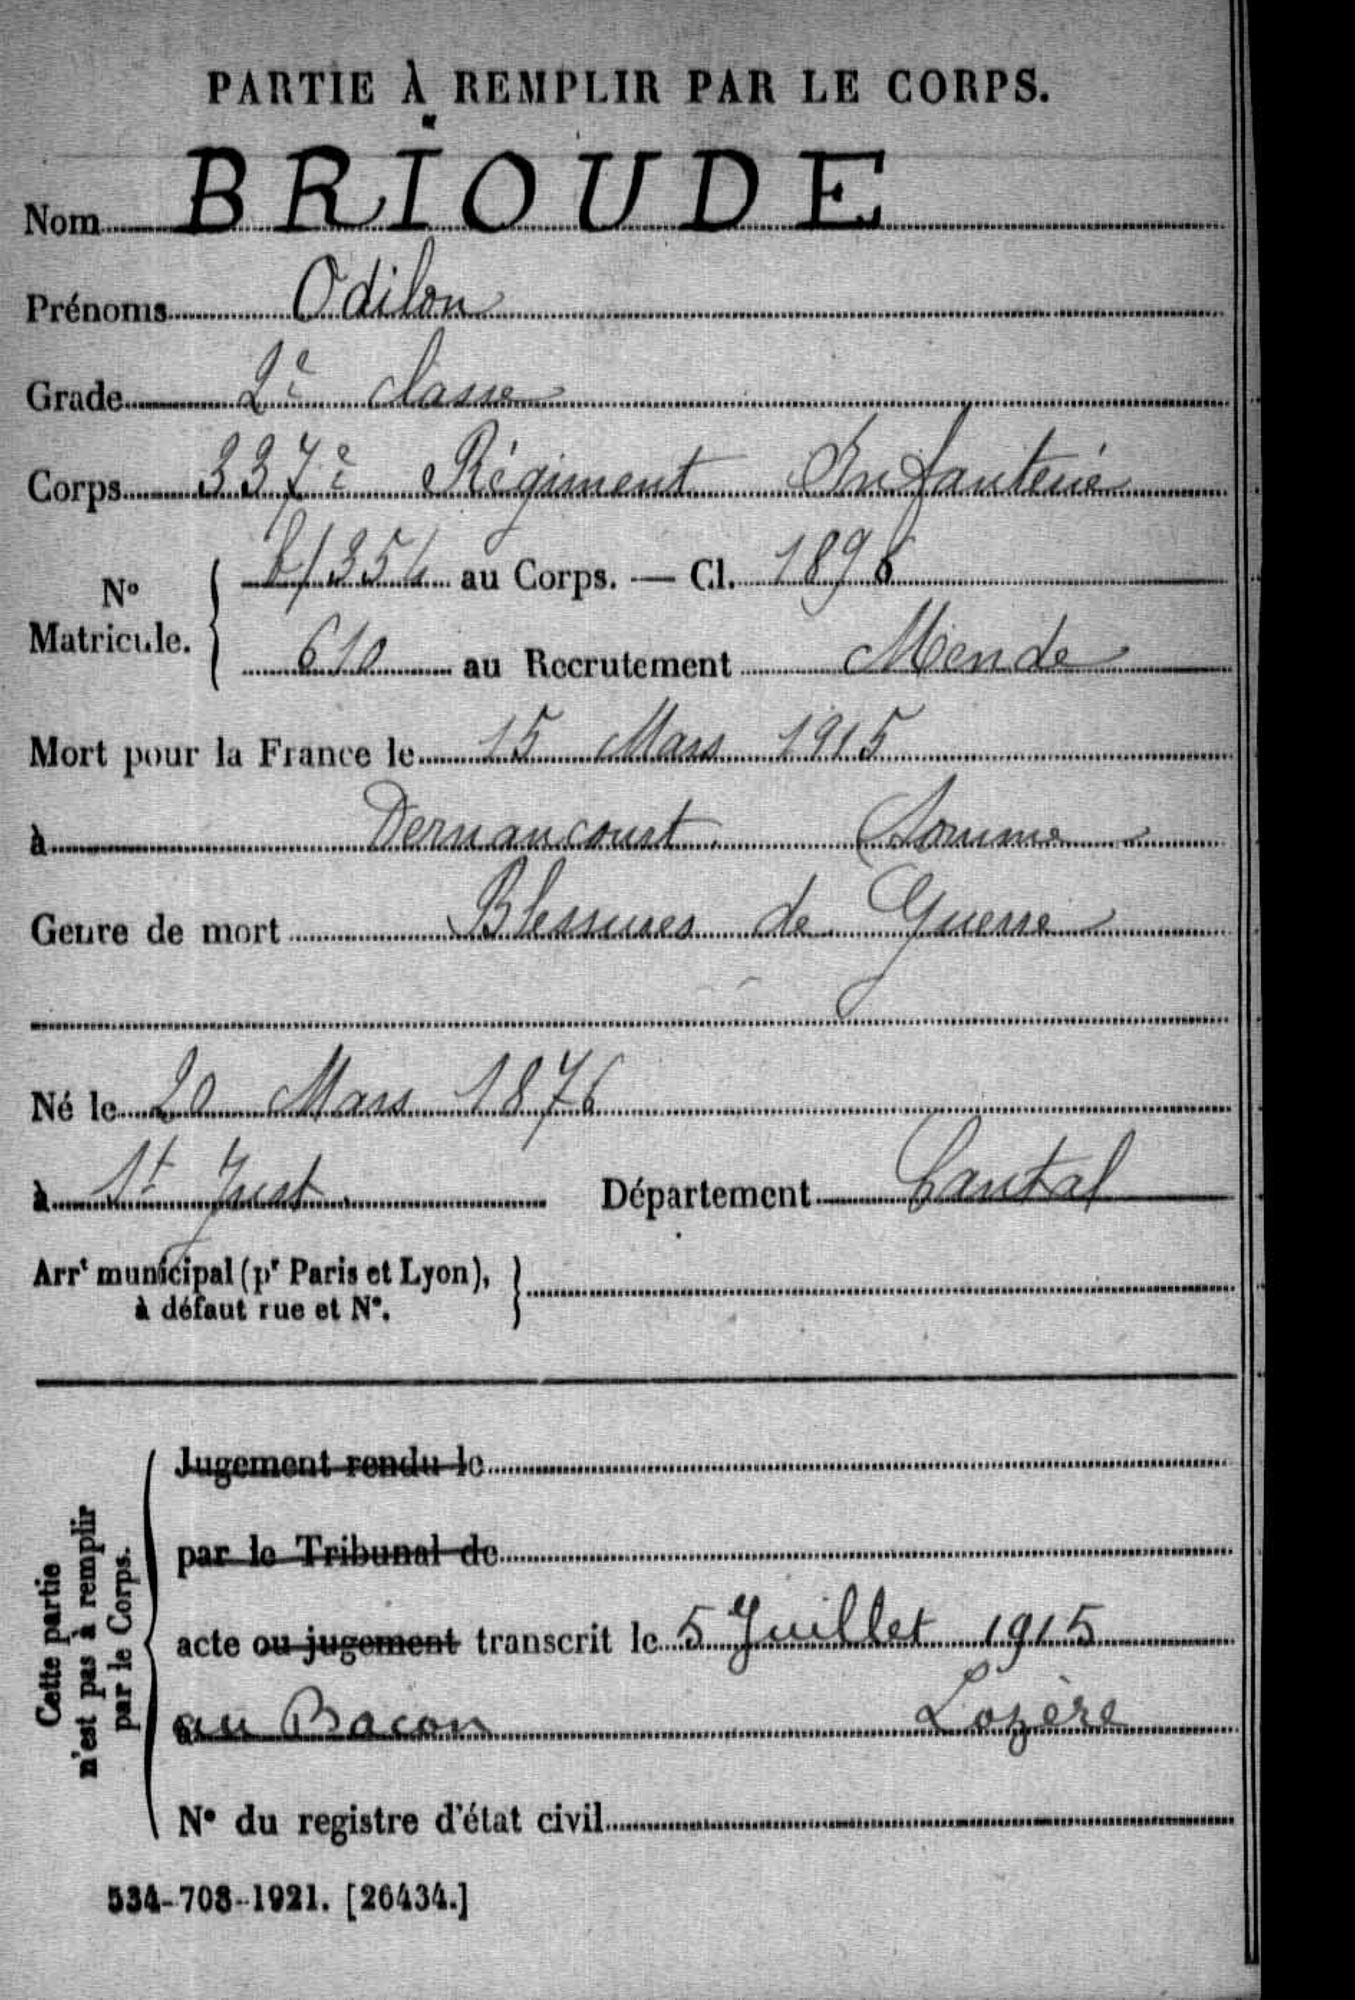 PARTIE À REMPLIR PAR LE CORPS.
Nom BRIOUDE
Prénoms Odilon
Grade 2e classe
Corps 337e Régiment Infanterie
No Matricule. au Corps. — Cl. 1896
610 au Recrutement Mende
Mort pour la France le 15 Mars 1915
à Dernancourt (Somme
Genre de mort Blessures de Guerre
Né le 20 Mars 1876
à St Just Département Cantal
Arrt municipal (pr Paris et Lyon),
à défaut rue et N°.
Cette partie
n'est pas à remplir
par le Corps.
Jugement rendu le
par le Tribunal de
acte ou jugement transcrit le 5 Juillet 1915
au Bacon Lozère
N° du registre d'état civil
534-708-1921. [26434.]